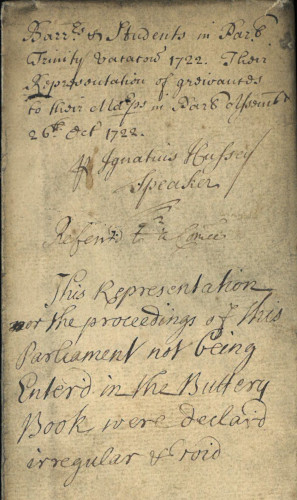 Barrs & Students in Parlt
Trinity Vacation 1722. Their
Representation of grievances
to their Mastps in Parlt assembd
26th Oct 1722.
Ignatius Hussey
Speaker
Referrd to a Comee
This Representation
nor the proceedings of this
Parliament not being
Enterd in the Buttery
Book, were declard
irregular & void